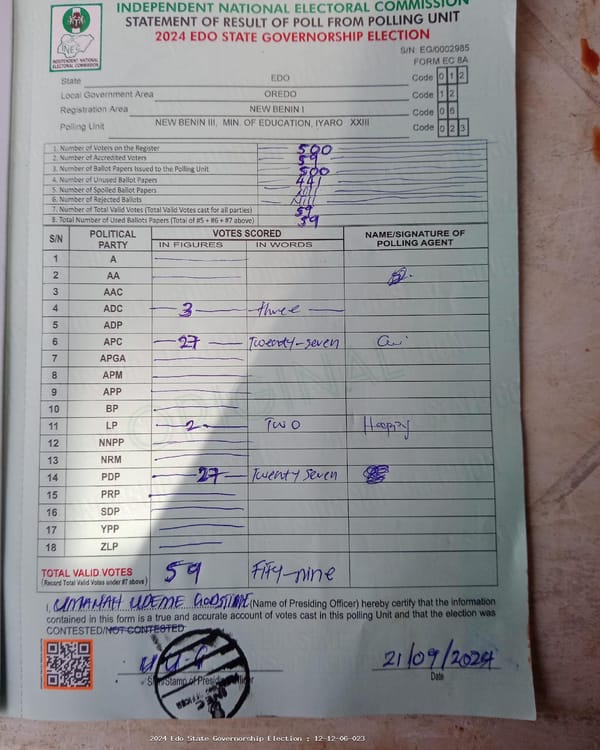 INDEPENDENT NATIONAL ELECTORAL COMMISSION
STATEMENT OF RESULT OF POLL FROM POLLING UNIT
2024 EDO STATE GOVERNORSHIP ELECTION
INEC
INDEPENDENT NATIONAL
ELECTORAL COMMISSION
S/N: EG/0002985
FORM EC 8A
State EDO Code 0 1 2
Local Government Area OREDO Code 1 2
Registration Area NEW BENIN I Code 0 6
Polling Unit NEW BENIN III, MIN. OF EDUCATION, IYARO XXIII Code 0 2 3
1. Number of Voters on the Register 500
2. Number of Accredited Voters 59
3. Number of Ballot Papers Issued to the Polling Unit 500
4. Number of Unused Ballot Papers 441
5. Number of Spoiled Ballot Papers Nill
6. Number of Rejected Ballots Nill
7. Number of Total Valid Votes (Total Valid Votes cast for all parties) 59
8. Total Number of Used Ballots Papers (Total of #5 + #6 + #7 above) 59
S/N POLITICAL PARTY VOTES SCORED NAME/SIGNATURE OF POLLING AGENT
IN FIGURES IN WORDS
1 A
2 AA
3 AAC
4 ADC 3 three
5 ADP
6 APC 27 Twenty-seven
7 APGA
8 APM
9 APP
10 BP
11 LP 2 TWO Happy
12 NNPP
13 NRM
14 PDP 27 Twenty Seven
15 PRP
16 SDP
17 YPP
18 ZLP
ORIGINAL
TOTAL VALID VOTES 59 Fifty-nine
(Record Total Valid Votes under #7 above)
I, UMANAH UDEME GODSTIME (Name of Presiding Officer) hereby certify that the information
contained in this form is a true and accurate account of votes cast in this polling Unit and that the election was
CONTESTED/NOT CONTESTED
21/09/2024
Date
2024 Edo State Governorship Election : 12-12-06-023